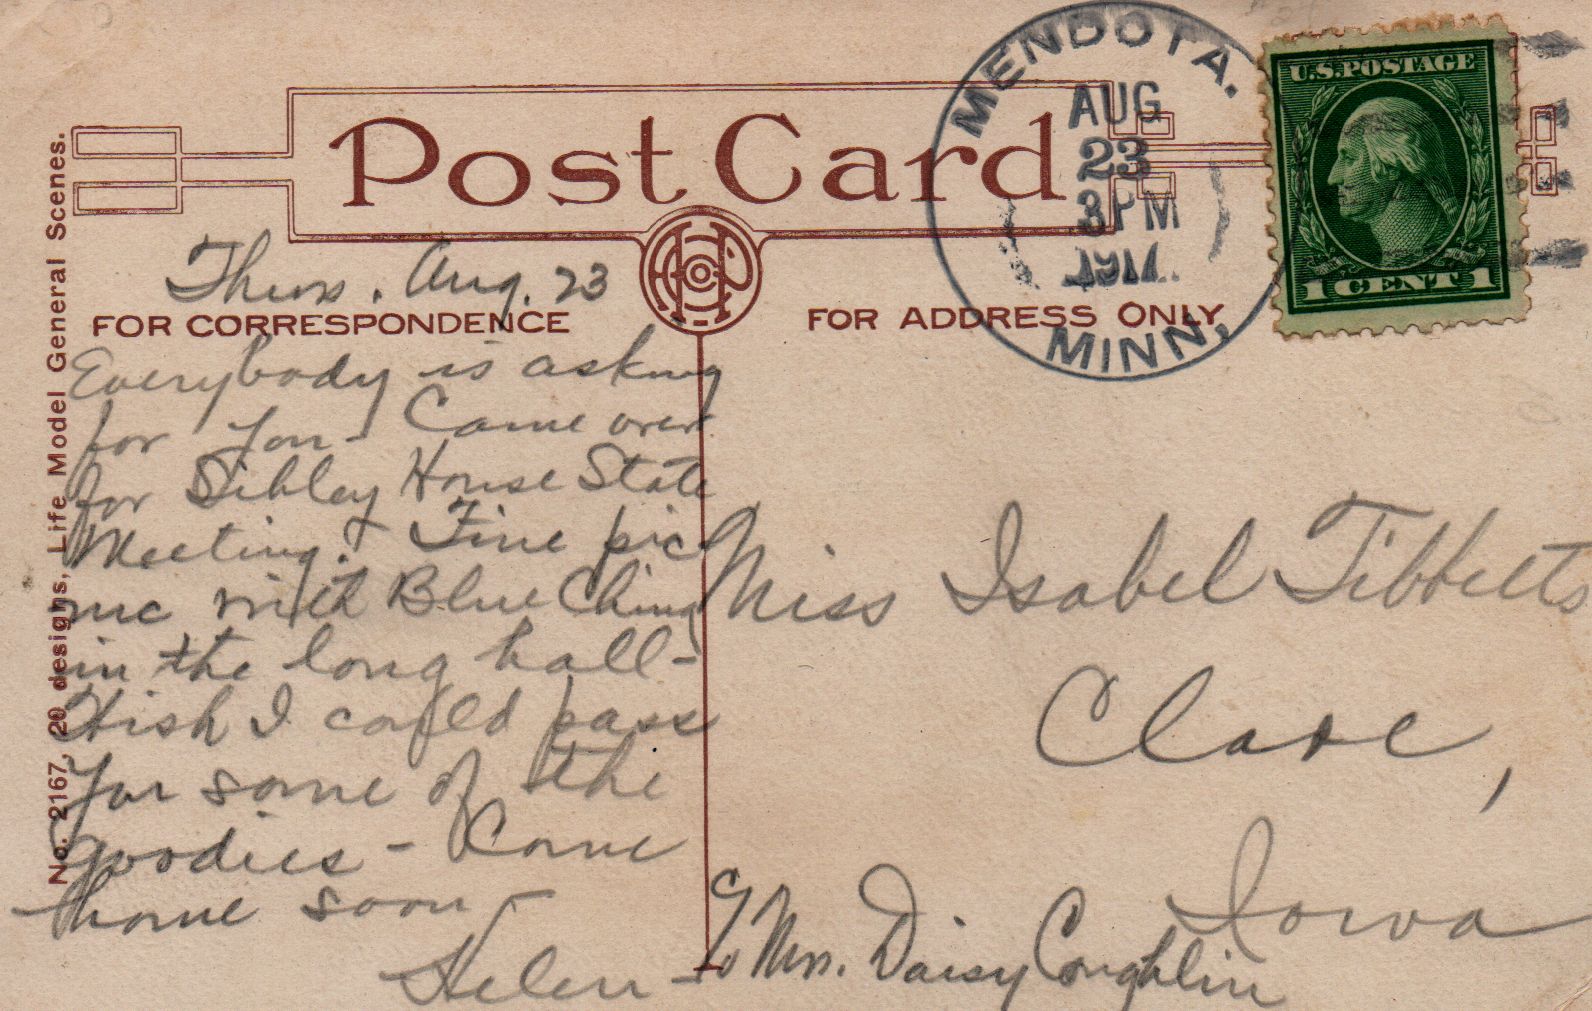 MENDOTA.
AUG
23
3 PM
1917
MINN.
U.S. POSTAGE
1 CENT 1
Post Card
Thurs. Aug. 23
FOR CORRESPONDENCE
FOR ADDRESS ONLY
Everybody is asking
for you - Came over
for Sibley House State
Meeting. Fine pic
nic with Blue China
in the long hall -
Wish I could pass
you some of the
goodies - Come
home soon -
Helen -
Miss Isabel Tibbetts
Clare,
Iowa
c/o Mrs. Daisy Coughlin
No. 2167, 20 designs, Life Model General Scenes.